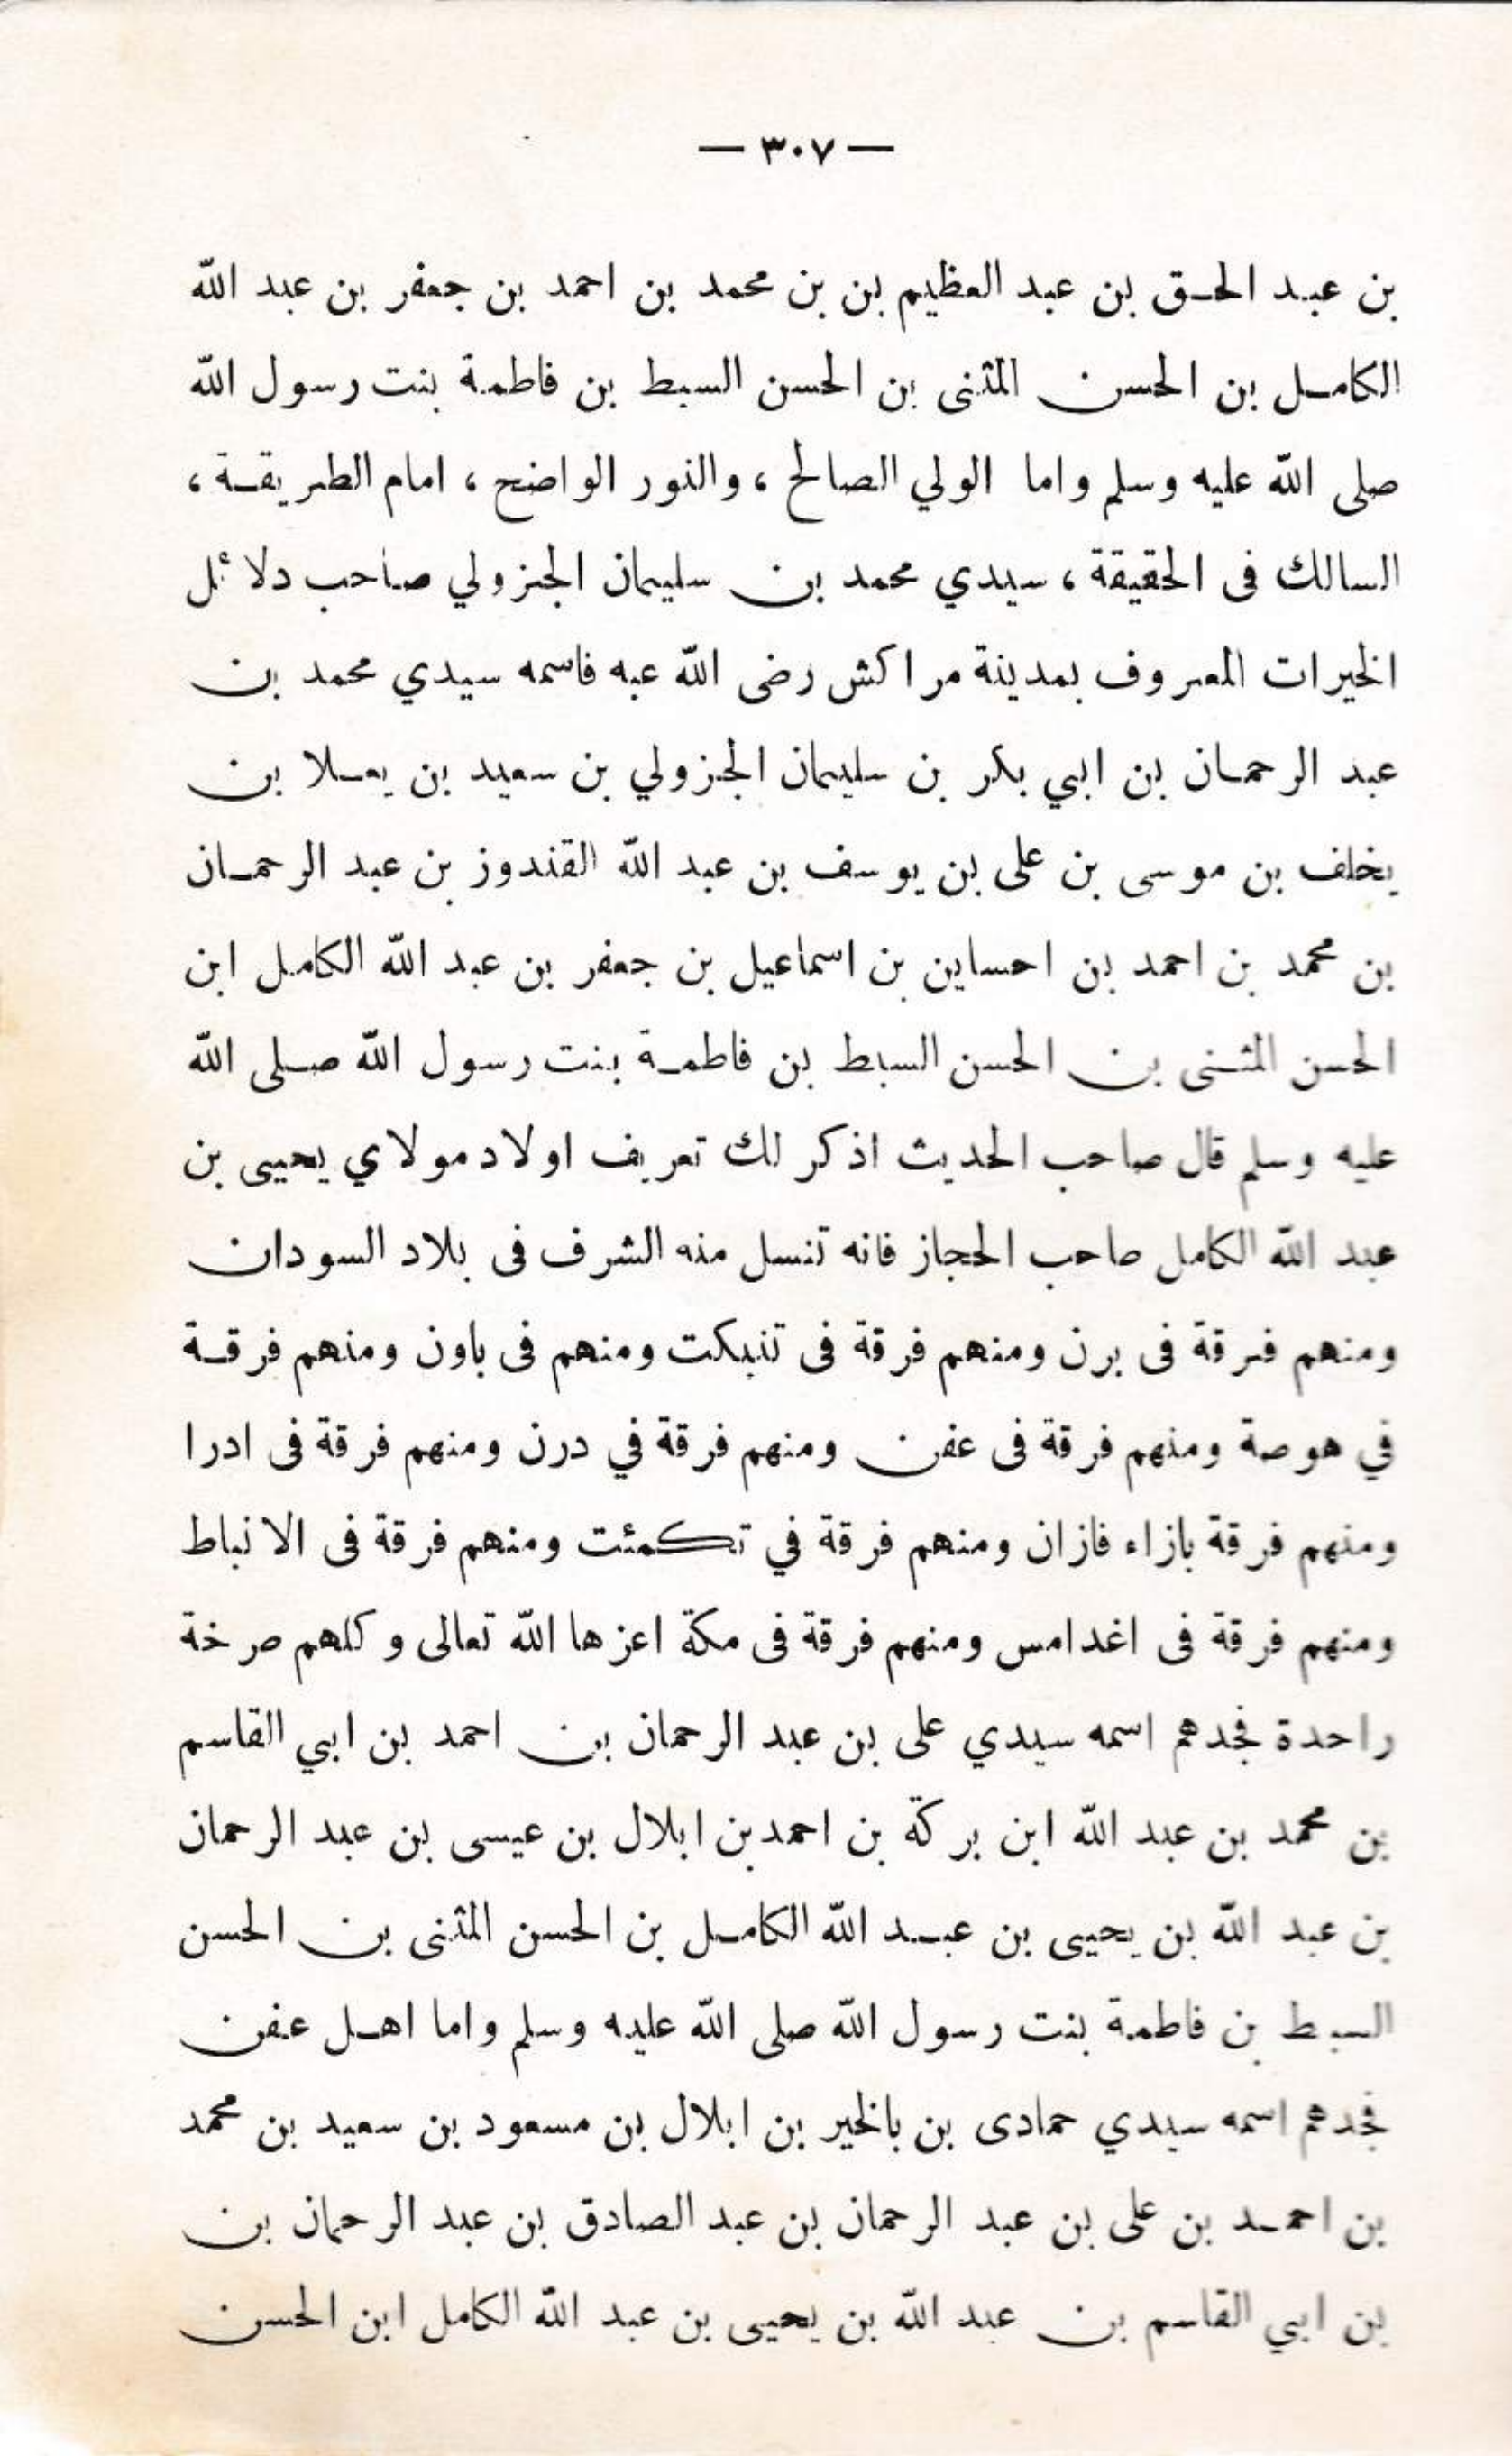 — ٣٠٧ —
بن عبد الحق بن عبد العظيم بن بن محمد بن احمد بن جعفر بن عبد الله
الكامل بن الحسن المثنى بن الحسن السبط بن فاطمة بنت رسول الله
صلى الله عليه وسلم واما الولي الصالح ، والنور الواضح ، امام الطريقة ،
السالك فى الحقيقة ، سيدي محمد بن سليمان الجزولي صاحب دلائل
الخيرات المعروف بمدينة مراكش رضى الله عبه فاسمه سيدي محمد بن
عبد الرحمان بن ابي بكر بن سليمان الجزولي بن سعيد بن يعلا بن
يخلف بن موسى بن على بن يوسف بن عبد الله القندوز بن عبد الرحمان
بن محمد بن احمد بن احساين بن اسماعيل بن جعفر بن عبد الله الكامل ابن
الحسن المثنى بن الحسن السبط بن فاطمة بنت رسول الله صلى الله
عليه وسلم قال صاحب الحديث اذكر لك تعريف اولاد مولاي يحيى بن
عبد الله الكامل صاحب الحجاز فانه تنسل منه الشرف فى بلاد السودان
ومنهم فرقة فى برن ومنهم فرقة فى تنبكت ومنهم فى باون ومنهم فرقة
في هوصة ومنهم فرقة فى عفن ومنهم فرقة في درن ومنهم فرقة فى ادرا
ومنهم فرقة بازاء فازان ومنهم فرقة في تكمئت ومنهم فرقة فى الانباط
ومنهم فرقة فى اغدامس ومنهم فرقة فى مكة اعزها الله تعالى وكلهم صرخة
راحدة فجدهم اسمه سيدي على بن عبد الرحمان بن احمد بن ابي القاسم
بن محمد بن عبد الله ابن بركة بن احمد بن ابلال بن عيسى بن عبد الرحمان
بن عبد الله بن يحيى بن عبد الله الكامل بن الحسن المثنى بن الحسن
السبط بن فاطمة بنت رسول الله صلى الله عليه وسلم واما اهل عفن
فجدهم اسمه سيدي حمادى بن بالخير بن ابلال بن مسعود بن سعيد بن محمد
بن احمد بن على بن عبد الرحمان بن عبد الصادق بن عبد الرحمان بن
بن ابي القاسم بن عبد الله بن يحيى بن عبد الله الكامل ابن الحسن